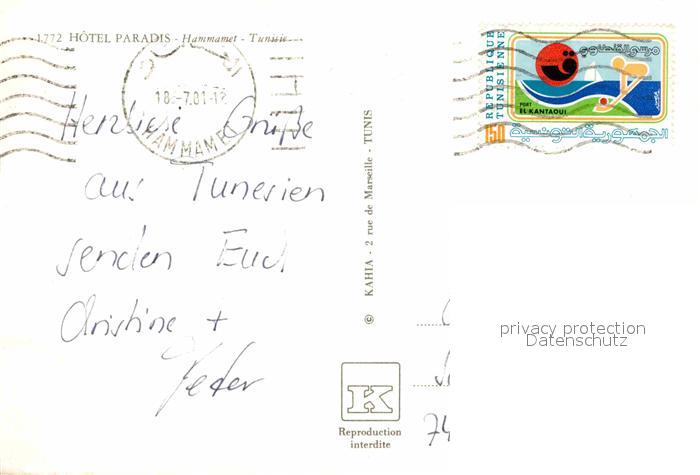 1772 HÔTEL PARADIS - Hammamet - Tunisie
18.-7.81-12
HAMMAMET
Herzliche Grüße
aus Tunesien
senden Euch
Christine +
Peter
© KAHIA - 2 rue de Marseille - TUNIS
K
Reproduction
interdite
REPUBLIQUE
TUNISIENNE
مرسى القنطاوي
PORT
EL KANTAOUI
150
الجمهورية التونسية
privacy protection
Datenschutz
74